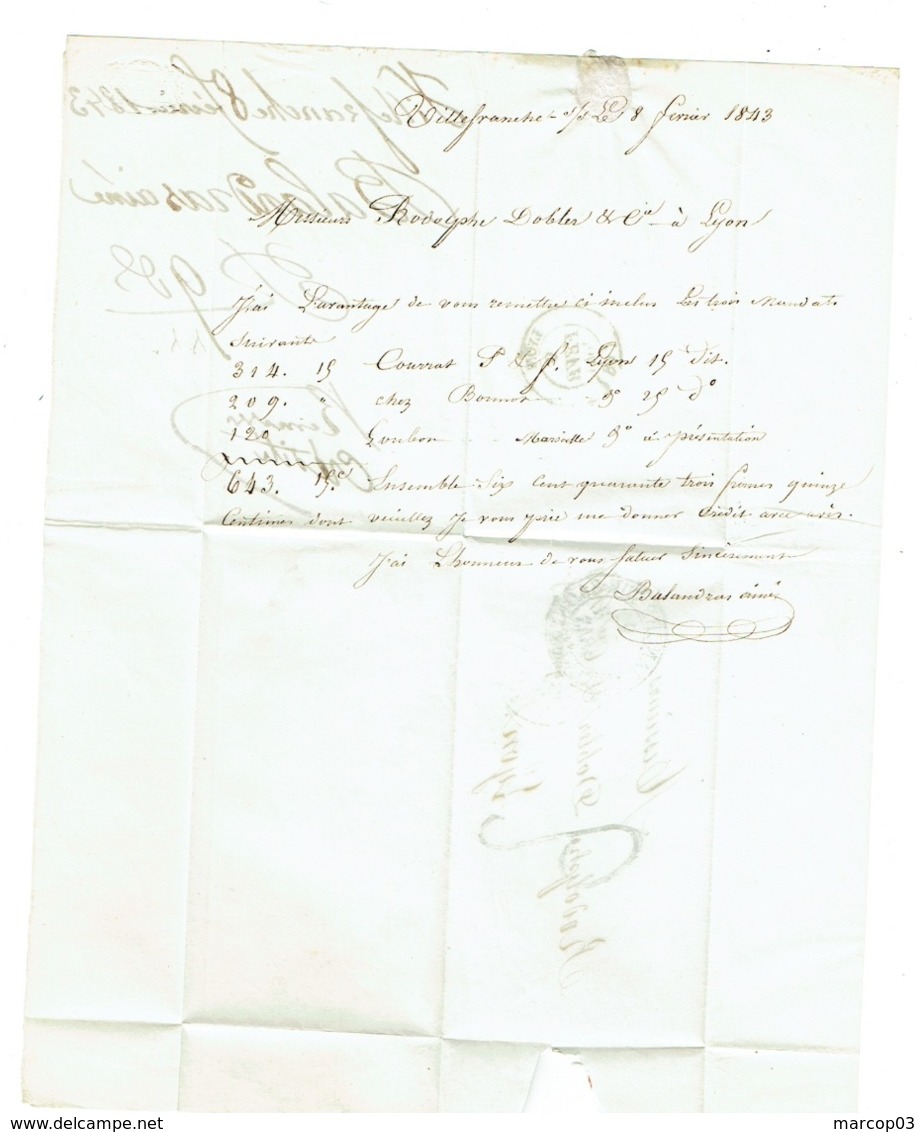 Villefranche s/s Le 8 fevrier 1843
Messieurs Rodolphe Dobler & Cie à Lyon
J'ai L'avantage de vous remettre ci inclus Les trois Mandats
Suivants
314. 15 Courrat P & f. Lyon 15 dit.
209. " chez Bonnot do 25 do
120 Loubon Marseille 9o à présentation
643. 15c Ensemble Six Cent quarante trois francs quinze
Centimes dont veuillez Je vous prie me donner Crédit avec avis.
J'ai L'honneur de vous Saluer Sincèrement
Balandras ainé
Villefranche 8 février 1843
Balandras ainé
Lyon
Rodolphe Dobler &
Messieurs
marcop03